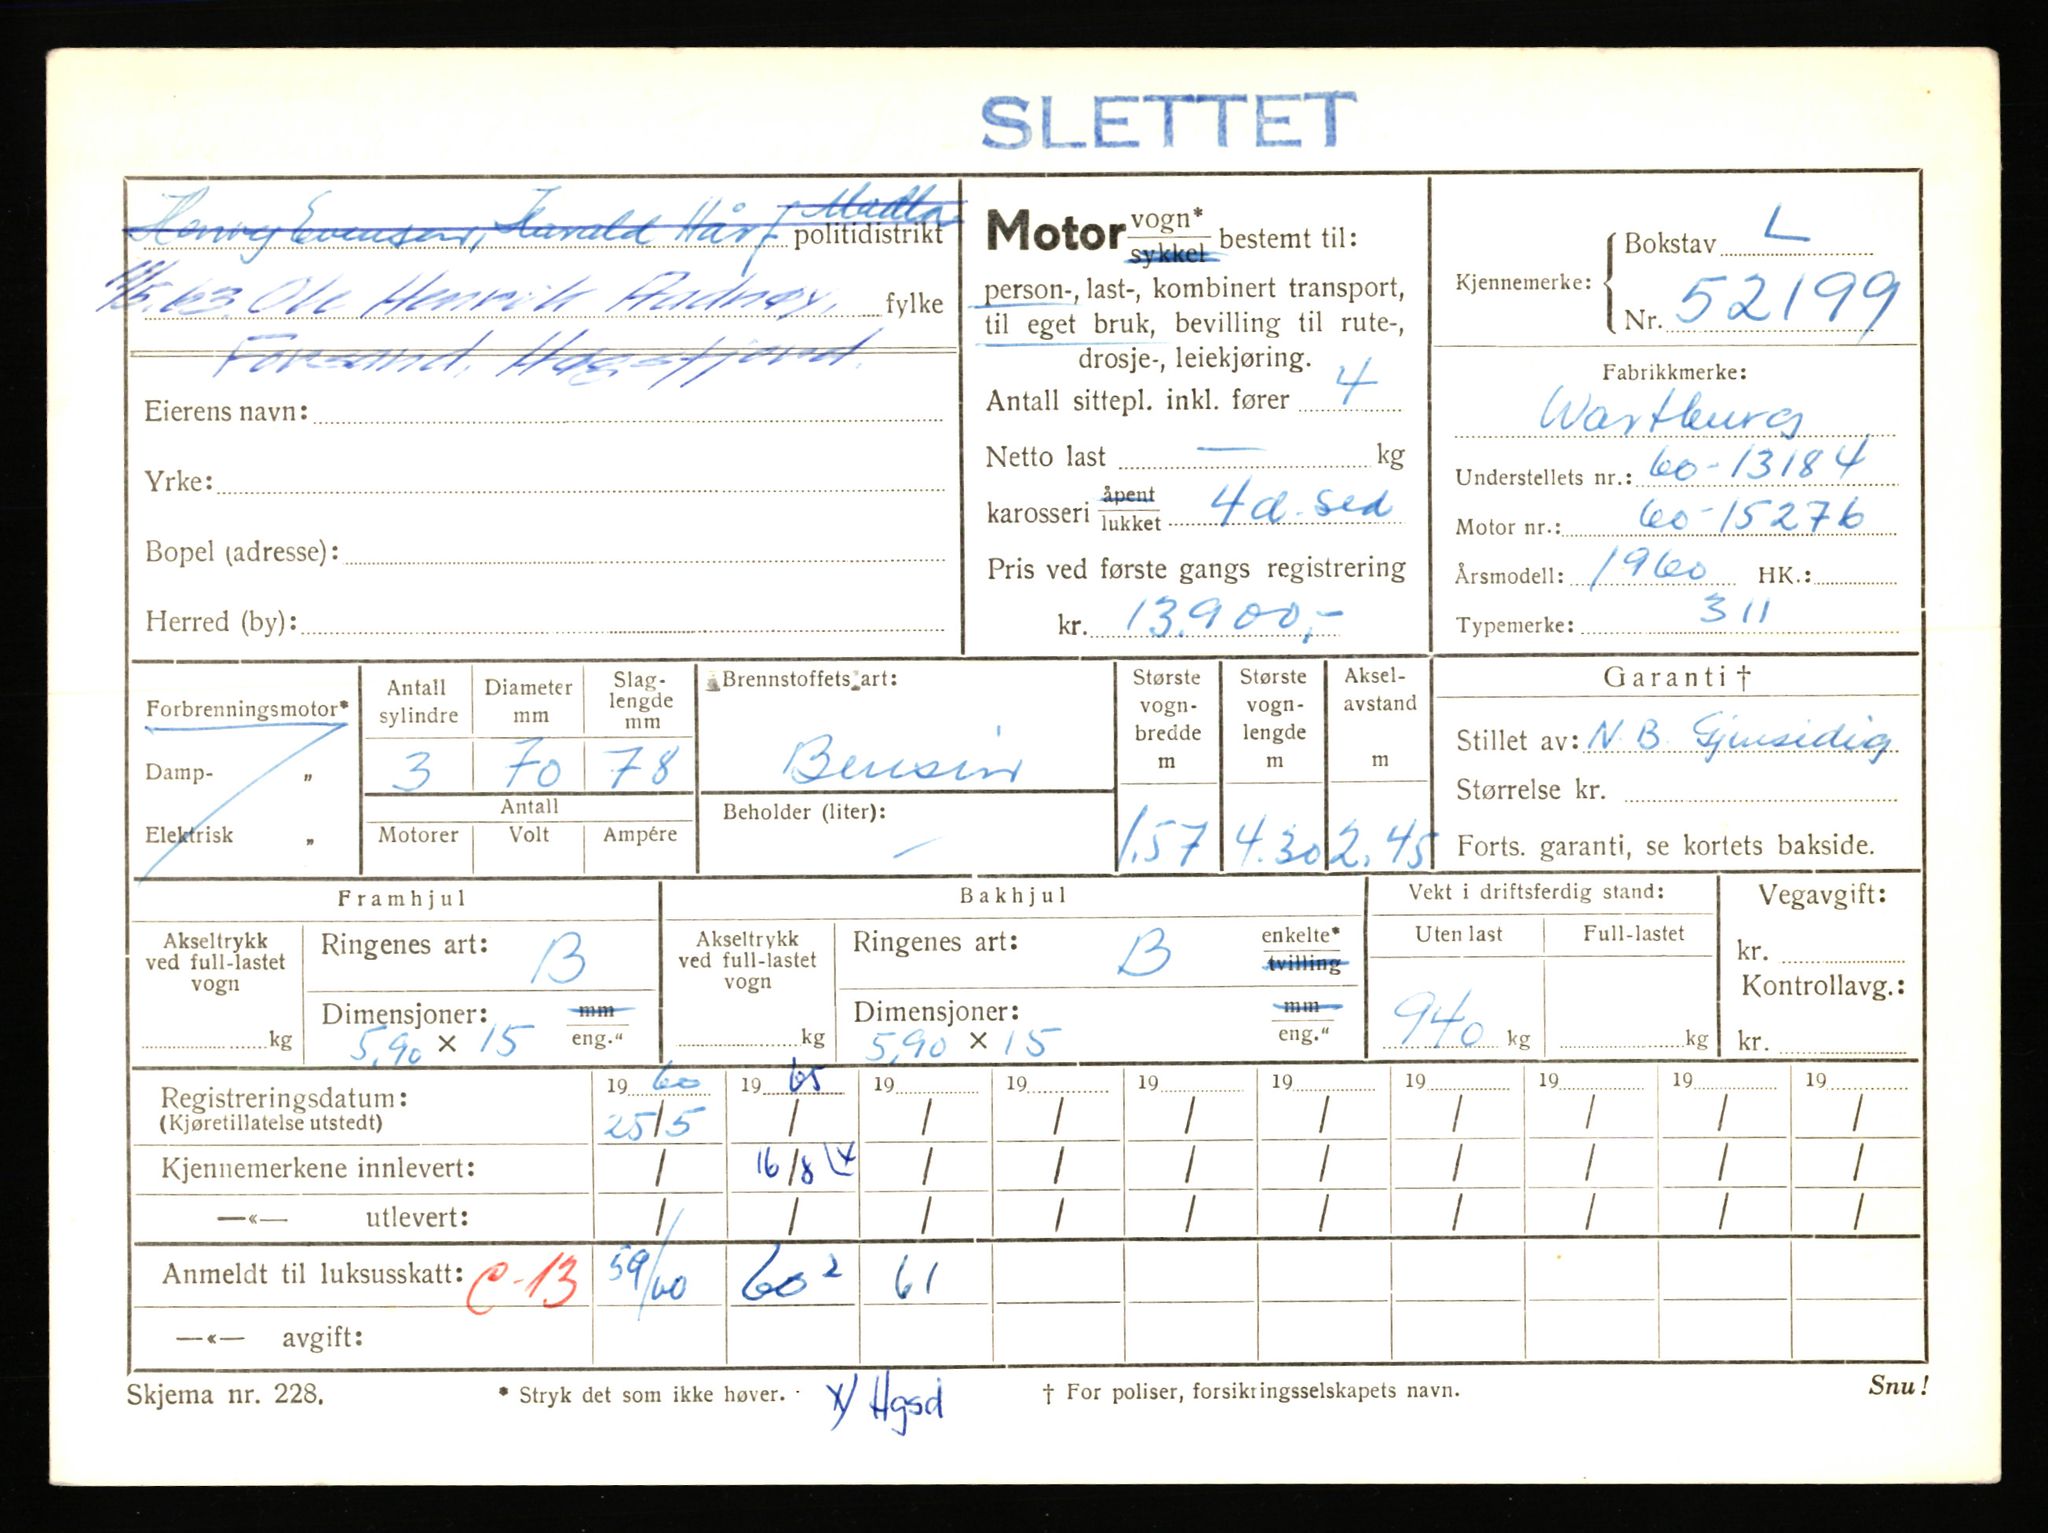 SLETTET
Henry Evensen, Harald Hårf Madla
politidistrikt
63. Ole Henrik Audnøy,
fylke
Forsand, Høgsfjord.
Eierens navn:
Yrke:
Bopel (adresse):
Herred (by):
Motor vogn* / sykkel bestemt til:
person-, last-, kombinert transport,
til eget bruk, bevilling til rute-,
drosje-, leiekjøring.
Antall sittepl. inkl. fører 4
Netto last — kg
karosseri åpent / lukket 4 d. sed
Pris ved første gangs registrering
kr. 13.900,-
Kjennemerke: Bokstav L
Nr. 52199
Fabrikkmerke:
Wartburg
Understellets nr.: 60-13184
Motor nr.: 60-15276
Årsmodell: 1960 HK.:
Typemerke: 311
Forbrenningsmotor*
Damp- „
Elektrisk „
Antall sylindre
Diameter mm
Slaglengde mm
3 70 78
Antall
Motorer Volt Ampére
Brennstoffets art:
Bensin
Beholder (liter):
—
Største vognbredde m
1.57
Største vognlengde m
4.30
Akselavstand m
2.45
Garanti †
Stillet av: N. B. Gjensidig
Størrelse kr.
Forts. garanti, se kortets bakside.
Framhjul
Akseltrykk
ved full-lastet
vogn
kg
Ringenes art: B
Dimensjoner: mm / eng."
5,90 × 15
Bakhjul
Akseltrykk
ved full-lastet
vogn
kg
Ringenes art: B enkelte* / tvilling
Dimensjoner: mm / eng."
5,90 × 15
Vekt i driftsferdig stand:
Uten last Full-lastet
940 kg kg
Vegavgift:
kr.
Kontrollavg.:
kr.
19 60 19 65 19 19 19 19 19 19 19 19
Registreringsdatum: 25/5 / / / / / / / / /
(Kjøretillatelse utstedt)
Kjennemerkene innlevert: / 16/8 x / / / / / / / /
—«— utlevert: / / / / / / / / / /
Anmeldt til luksusskatt: C-13 59/60 60² 61
—«— avgift:
Skjema nr. 228.
* Stryk det som ikke høver.
x/ Hgsd
† For poliser, forsikringsselskapets navn.
Snu!